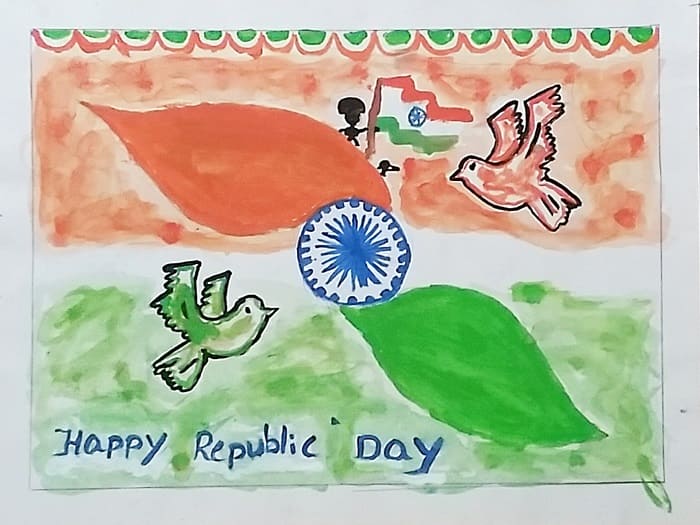 Happy Republic Day